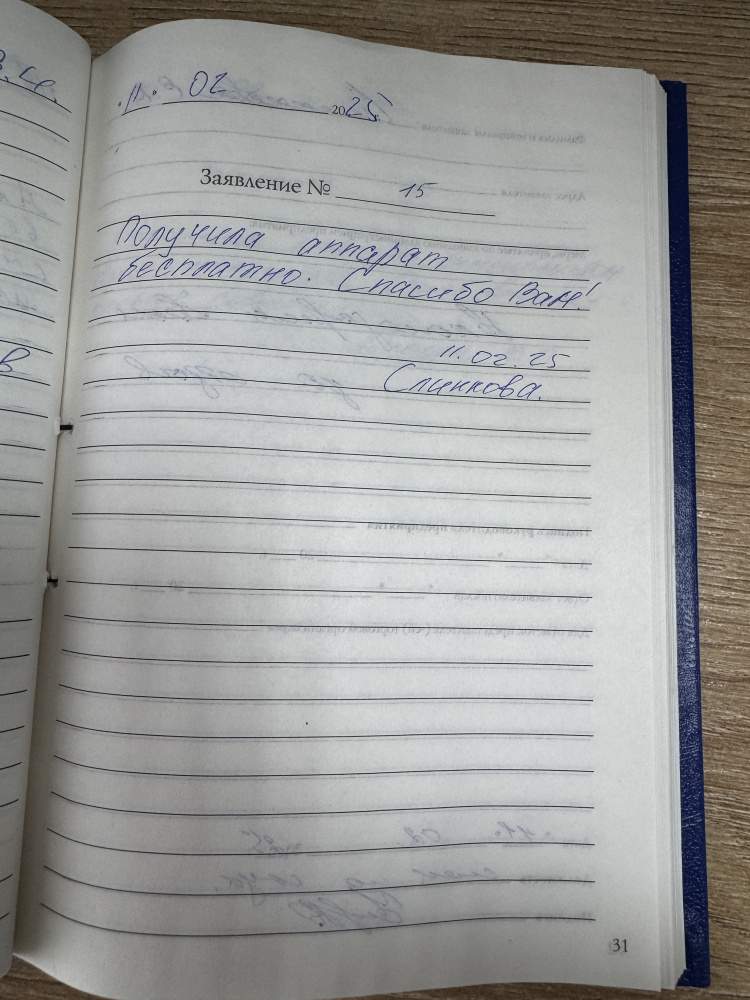 "11" 02 2025г.
Заявление № 15
Получила аппарат
бесплатно. Спасибо Вам!
11.02.25
Слинкова.
31